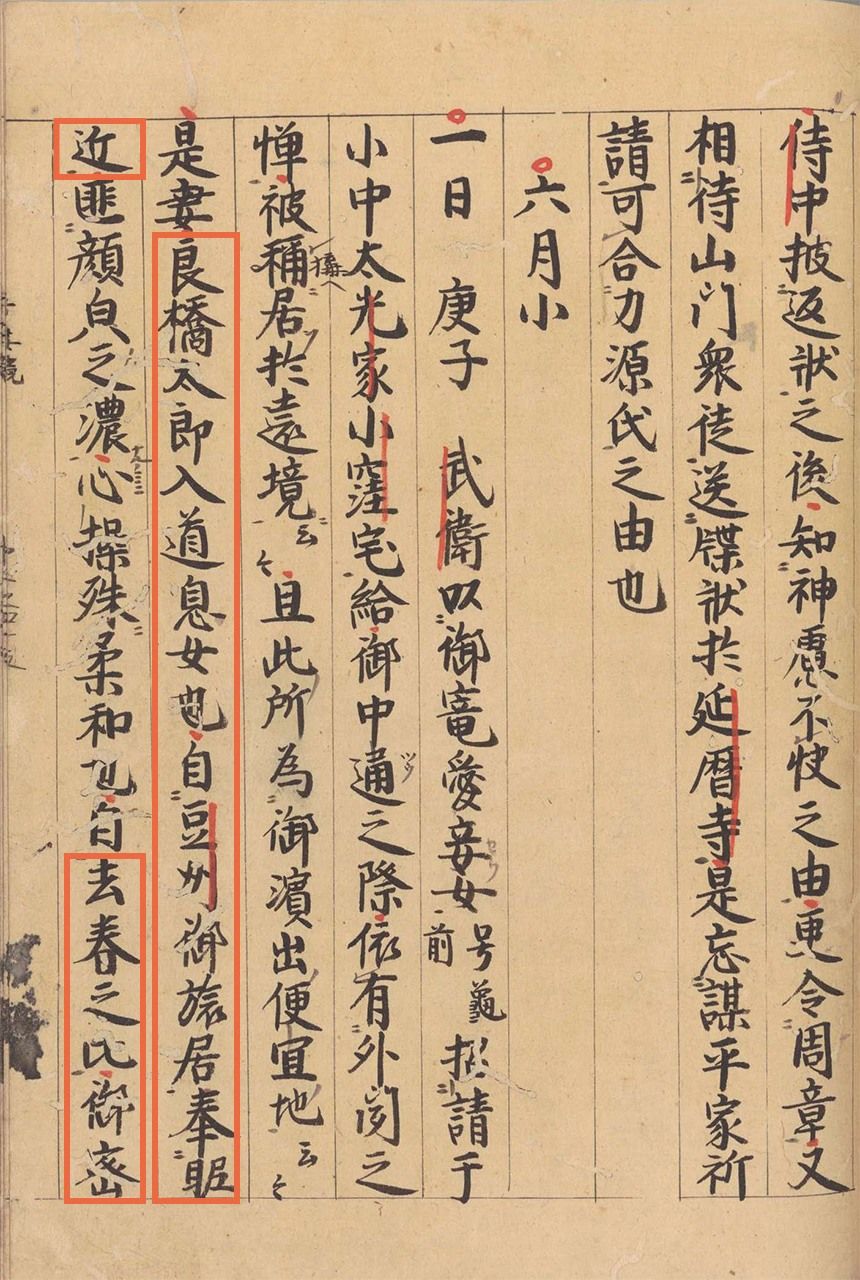 侍中披返状之後知神慮不快之由更令周章又
相待山門衆徒送牒状於延暦寺是忘謀平家祈
請可合力源氏之由也
六月小
一日 庚子 武衛以御寵愛妾女号亀前招請于
小中太光家小窪宅給御中通之際依有外聞之
憚被稱居於遠境云々且此所為御濱出便宜地云々
是妻良橋太郎入道息女也自豆州御旅居奉眤
近匪顔皃之濃心操殊柔和也自去春之比御密